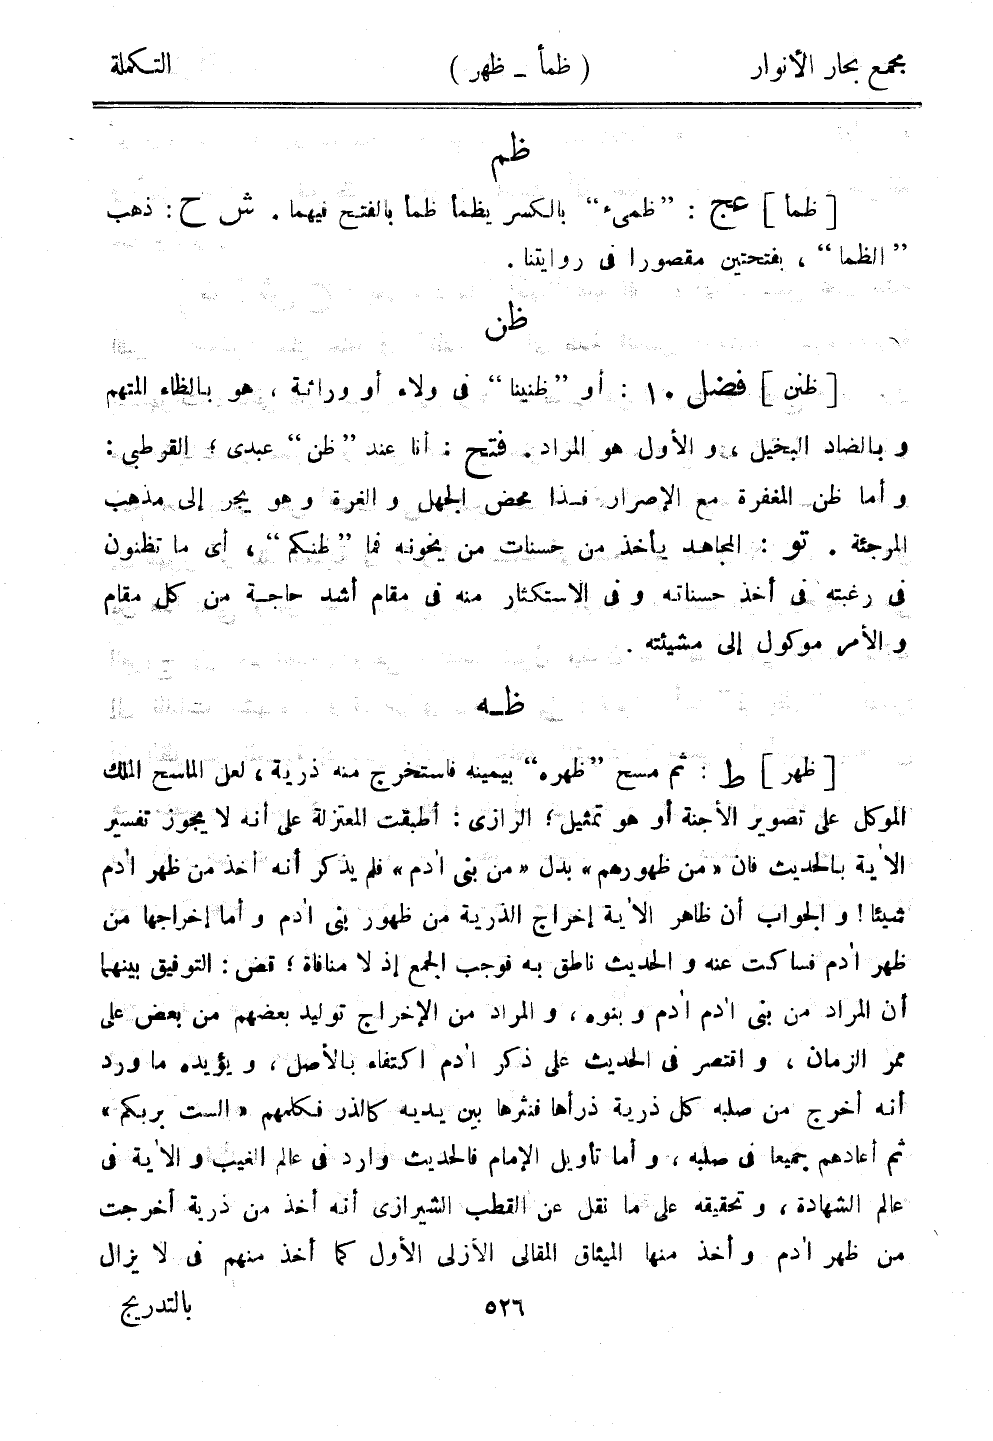 مجمع بحار الأنوار ( ظمأ ـ ظهر ) التكملة
ظم
[ ظمأ ] عج : ”ظمىء“ بالكسر يظمأ ظمأ بالفتح فيهما . ش ح : ذهب
”الظما“ ، بفتحتين مقصورا فى روايتنا .
ظن
[ ظنن ] فضل ١٠ : أو ”ظنينا“ فى ولاء أو وراثة ، هو بالظاء المتهم
و بالضاد البخيل ، و الأول هو المراد . فتح : أنا عند ”ظن“ عبدى ؛ القرطبى :
و أما ظن المغفرة مع الإصرار فـذا محض الجهل و الغرة و هو يجر إلى مذهب
المرجئة . تو : المجاهد يأخذ من حسنات من يخونه فما ”ظنكم“ ، أى ما تظنون
فى رغبته فى أخذ حسناته و فى الاستكثار منه فى مقام أشد حاجة من كل مقام
و الأمر موكول إلى مشيئته .
ظـه
[ ظهر ] ط : ثم مسح ”ظهره“ بيمينه فاستخرج منه ذرية ، لعل الماسح الملك
الموكل على تصوير الأجنة أو هو تمثيل ؛ الرازى : أطبقت المعتزلة على أنه لا يجوز تفسير
الاٰية بالحديث فان «من ظهورهم» بدل «من بنى اٰدم» فلم يذكر أنه أخذ من ظهر اٰدم
شيئا ! و الجواب أن ظاهر الاٰية إخراج الذرية من ظهور بنى اٰدم و أما إخراجها من
ظهر اٰدم فساكت عنه و الحديث ناطق به فوجب الجمع إذ لا منافاة ؛ قض : التوفيق بينهما
أن المراد من بنى اٰدم اٰدم و بنوه ، و المراد من الإخراج توليد بعضهم من بعض على
ممر الزمان ، و اقتصر فى الحديث على ذكر اٰدم اكتفاء بالأصل ، و يؤيده ما ورد
أنه أخرج من صلبه كل ذرية ذرأها فنثرها بين يديه كالذر فكلمهم «الست بربكم»
ثم أعادهم جميعا فى صلبه ، و أما تأويل الإمام فالحديث وارد فى عالم الغيب و الاٰية فى
عالم الشهادة ، و تحقيقه على ما نقل عن القطب الشيرازى أنه أخذ من ذرية أخرجت
من ظهر اٰدم و أخذ منها الميثاق المقالى الأزلى الأول كما أخذ منهم فى لا يزال
٥٢٦ بالتدريج